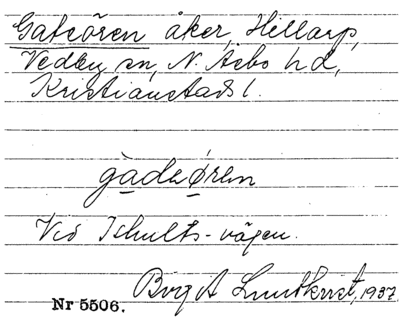 Gateören åker, Hillarp,
Vedby sn, N. Åsbo hd,
Kristianstads l.
gàdeøren
Vid Ishults-vägen.
Birgit Lundkvist, 1937
Nr 5506.